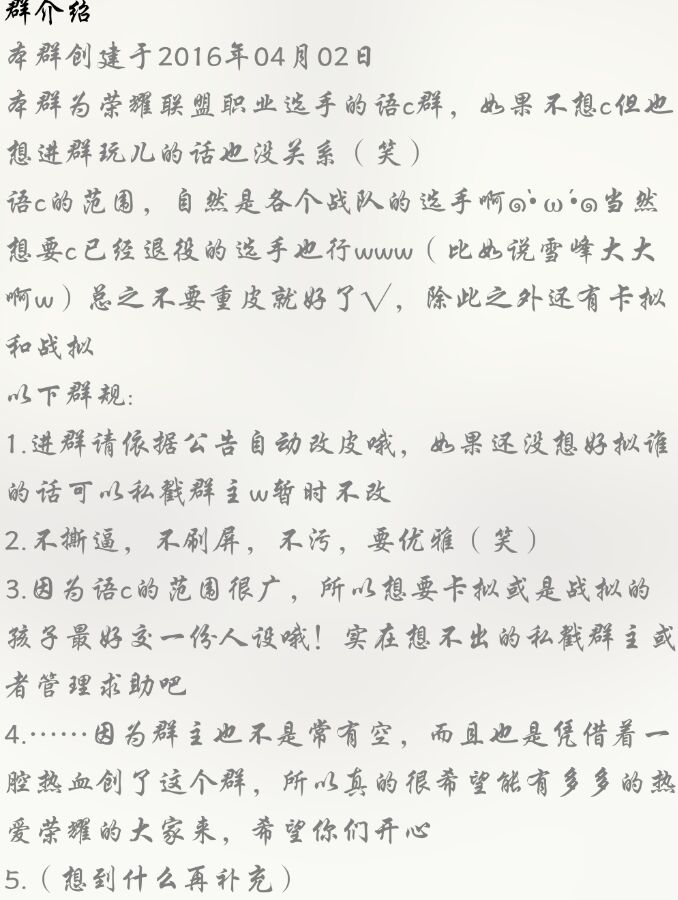 群介绍
本群创建于2016年04月02日
本群为荣耀联盟职业选手的语c群，如果不想c但也
想进群玩儿的话也没关系（笑）
语c的范围，自然是各个战队的选手啊๑•̀ω•́๑当然
想要c已经退役的选手也行www（比如说雪峰大大
啊w）总之不要重皮就好了√，除此之外还有卡拟
和战拟
以下群规:
1.进群请依据公告自动改皮哦，如果还没想好拟谁
的话可以私戳群主w暂时不改
2.不撕逼，不刷屏，不污，要优雅（笑）
3.因为语c的范围很广，所以想要卡拟或是战拟的
孩子最好交一份人设哦！实在想不出的私戳群主或
者管理求助吧
4.……因为群主也不是常有空，而且也是凭借着一
腔热血创了这个群，所以真的很希望能有多多的热
爱荣耀的大家来，希望你们开心
5.（想到什么再补充）